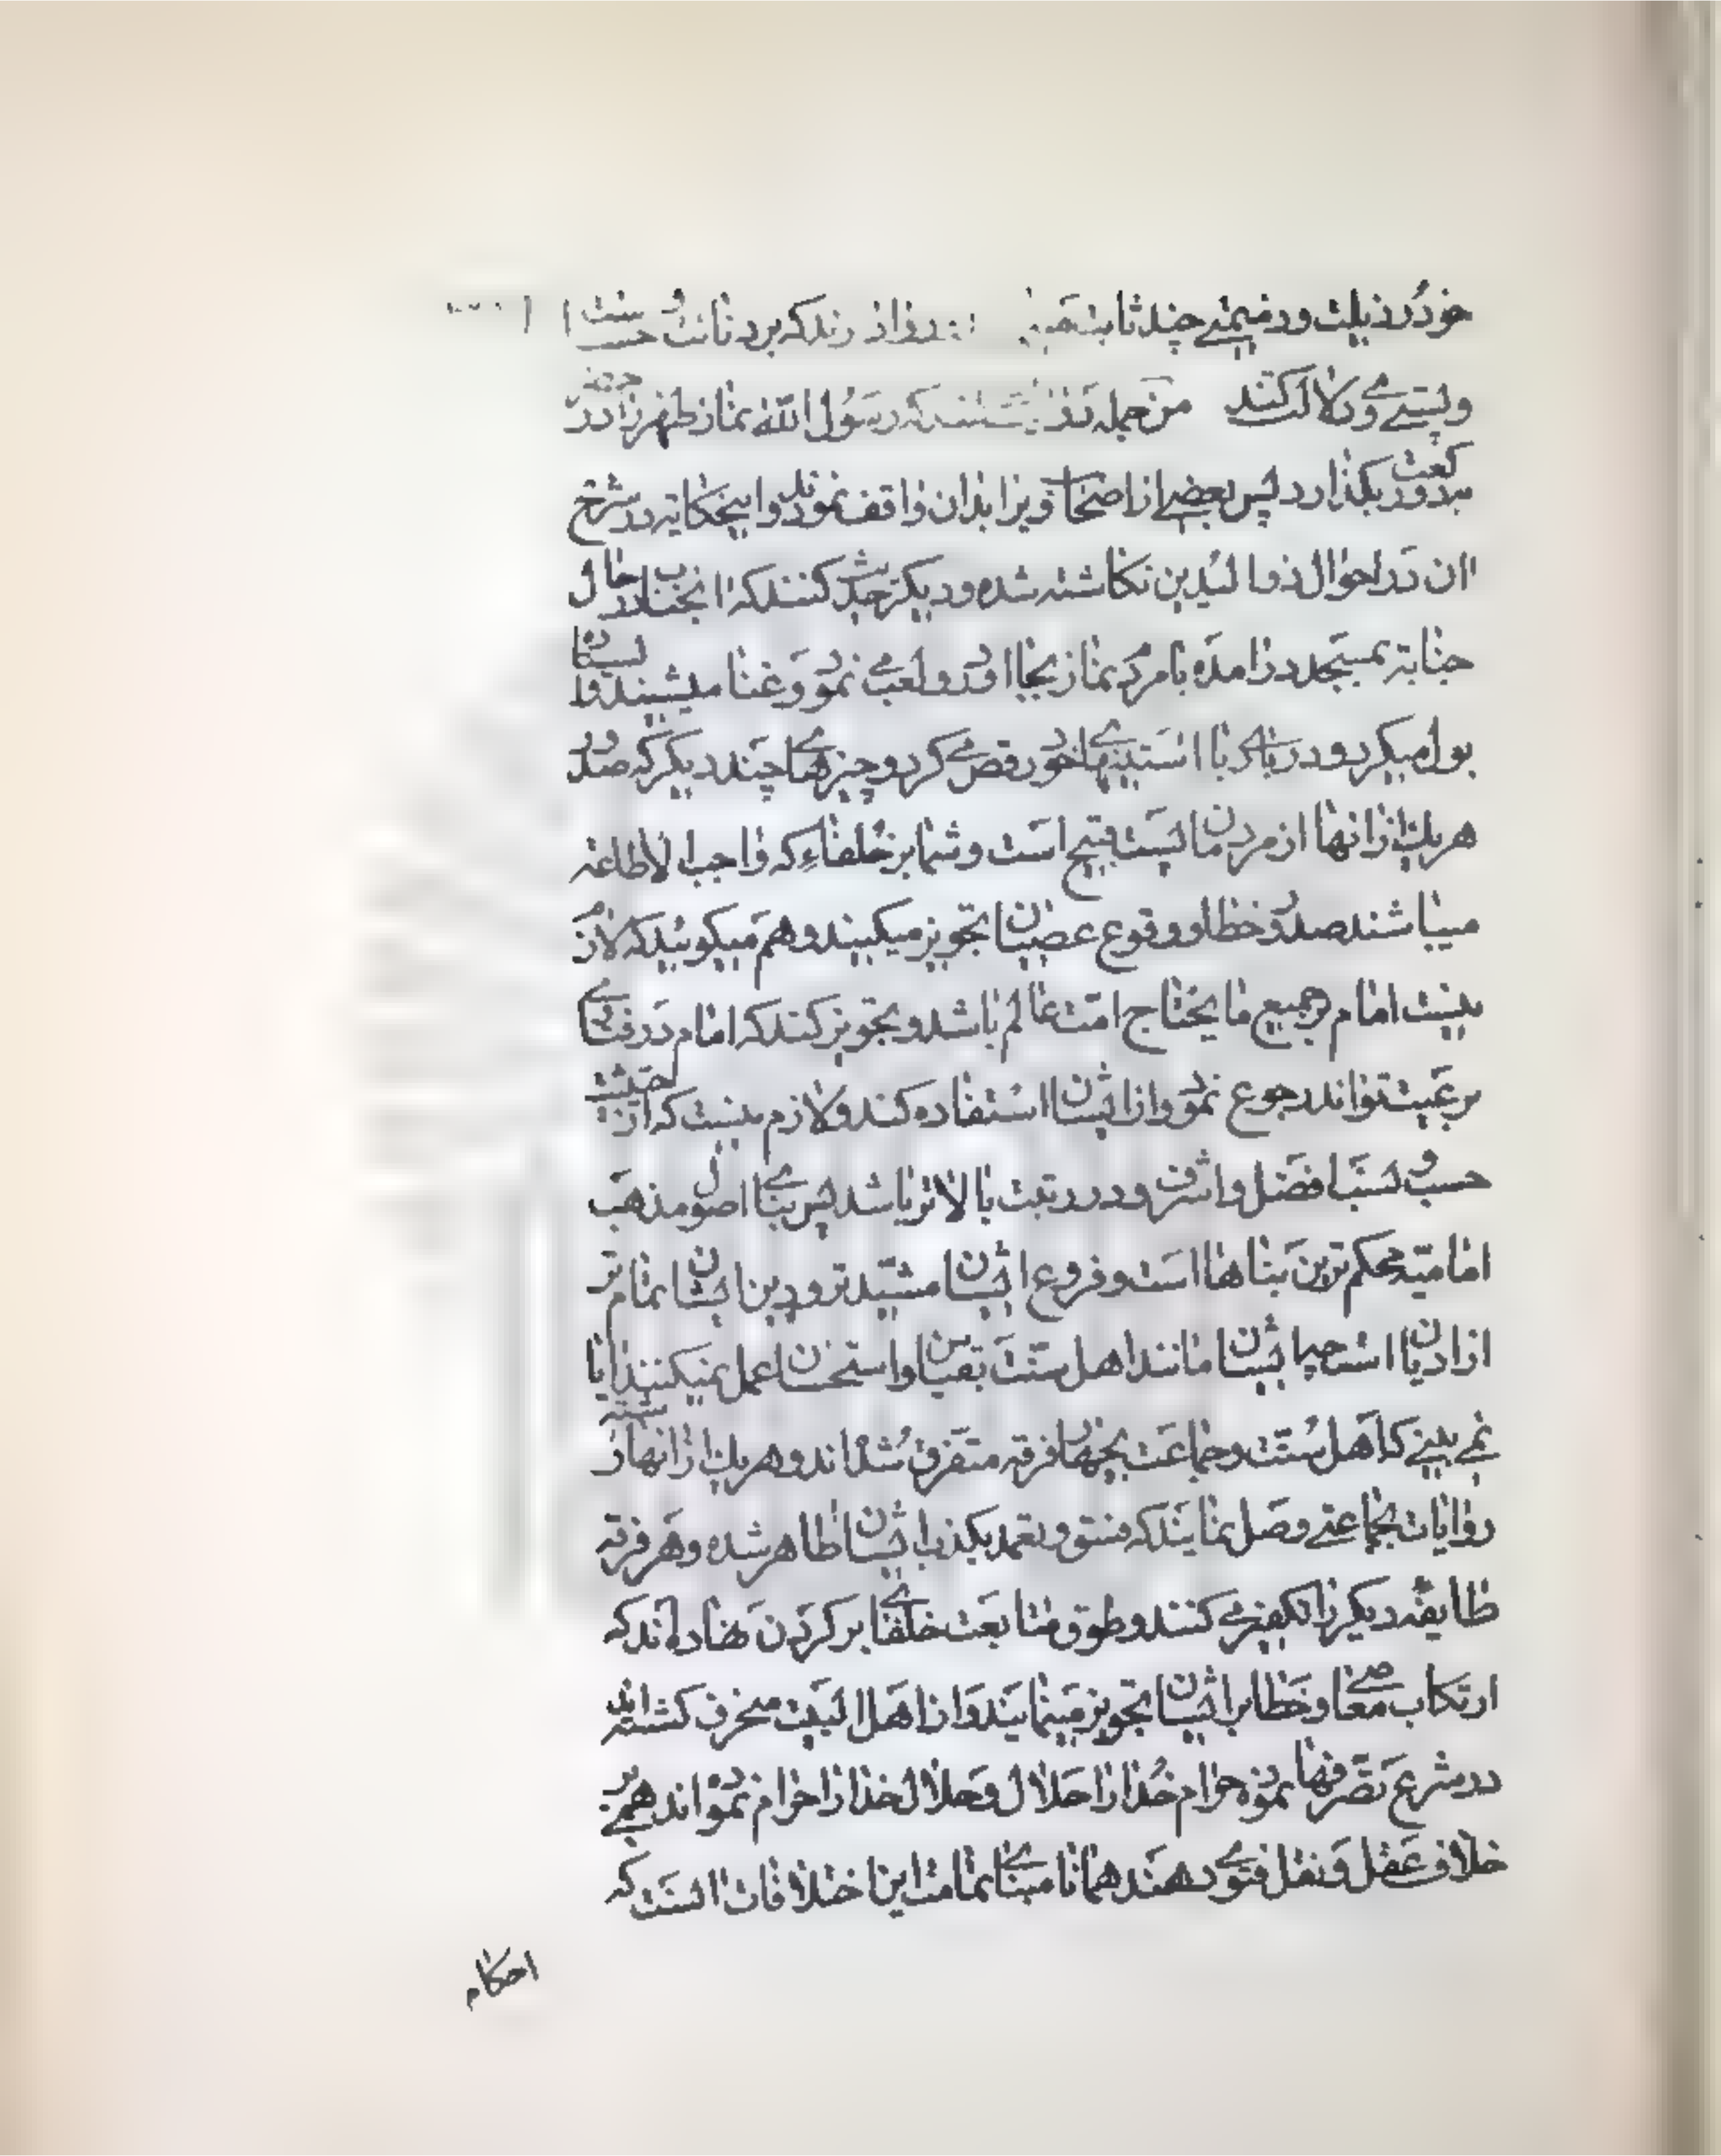 خود رذیلت و دمیمتی چند ثابت روا دارند که بر دنائت حسب
و پستی وی دلالت کند من جمله گفتند که رسول الله نماز ظهر را در حضر
بدو رکعت بگذارد پس بعضی از اصحاب ویرا بدان واقف نمودند و اینحکایه در شرح
ان در احوال ذوالیدین نکاشته شده و دیکر حدیث کنند که انجناب در حال
جنابة بمسجد در امده با مردم نماز بجا اورد و لعب می نمود و غنا میشنید و ایستاده
بول میکرد و در با استینهای خود رقص می کرد و چیزهای چند دیکر که صدور
هریک از انها از مردمان پست قبیح است و شما بر خلفاء که واجب الاطاعة
میباشند صدور خطا و وقوع عصیان تجویز میکنید و هم میکوئید که لازم
نیست امام بر جمیع ما یحتاج امت عالم باشد و تجویز کنند که امام در فتاوی
برعیت تواند رجوع نمود و از ایشان استفاده کند و لازم نیست که از حیثیت
حسب و نسب افضل و اشرف و در رتبت بالاتر باشد پس بنای اصول مذهب
امامیه محکم ترین بناها است و فروع ایشان مشید تر و دین ایشان تمام تر
از ادیان است چه ایشان مانند اهل سنت بقیاس و استحسان عمل نمیکنند ایا
نمی بینی که اهل سنت و جماعت بچهار فرقه متفرق شده اند و هریک از انها رشته
روایات بجماعتی وصل نمایند که فسق و تعمد بکذب ایشان ظاهر شده و هر فرقه
طایفه دیکر را تکفیر می کنند و طوق متابعت خلفائی بر کردن نهاده اند که
ارتکاب معاصی و خطا بر ایشان تجویز مینمایند و از اهل البیت منحرف کشته اند
در شرع تصرفها نموده حرام خدا را حلال و حلال خدا را حرام نموده اند و هم بر
خلاف عقل و نقل فتوی دهند همانا مبنای تمامت این اختلافات انست که
احکام